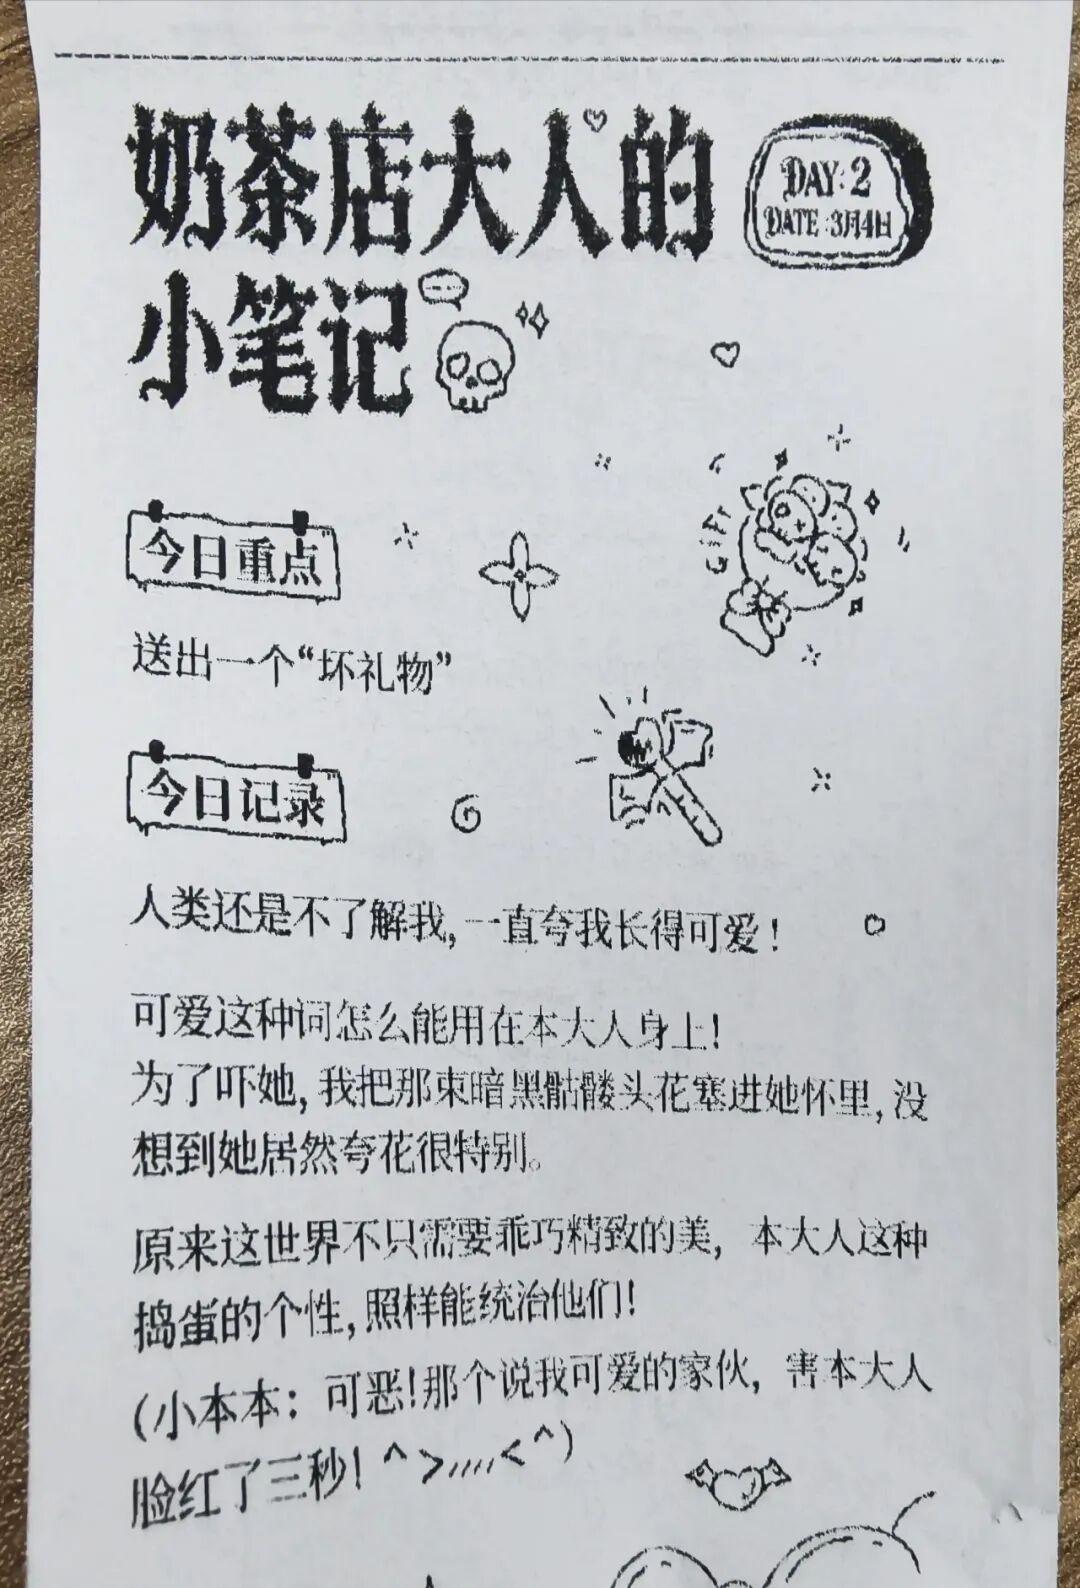 奶茶店大人的
小笔记
DAY: 2
DATE: 3月4日
GIFT
今日重点
送出一个“坏礼物”
今日记录
人类还是不了解我,一直夸我长得可爱!
可爱这种词怎么能用在本大人身上!
为了吓她,我把那束暗黑骷髅头花塞进她怀里,没
想到她居然夸花很特别。
原来这世界不只需要乖巧精致的美,本大人这种
捣蛋的个性,照样能统治他们!
(小本本：可恶!那个说我可爱的家伙，害本大人
脸红了三秒! ^>,,,,<^)